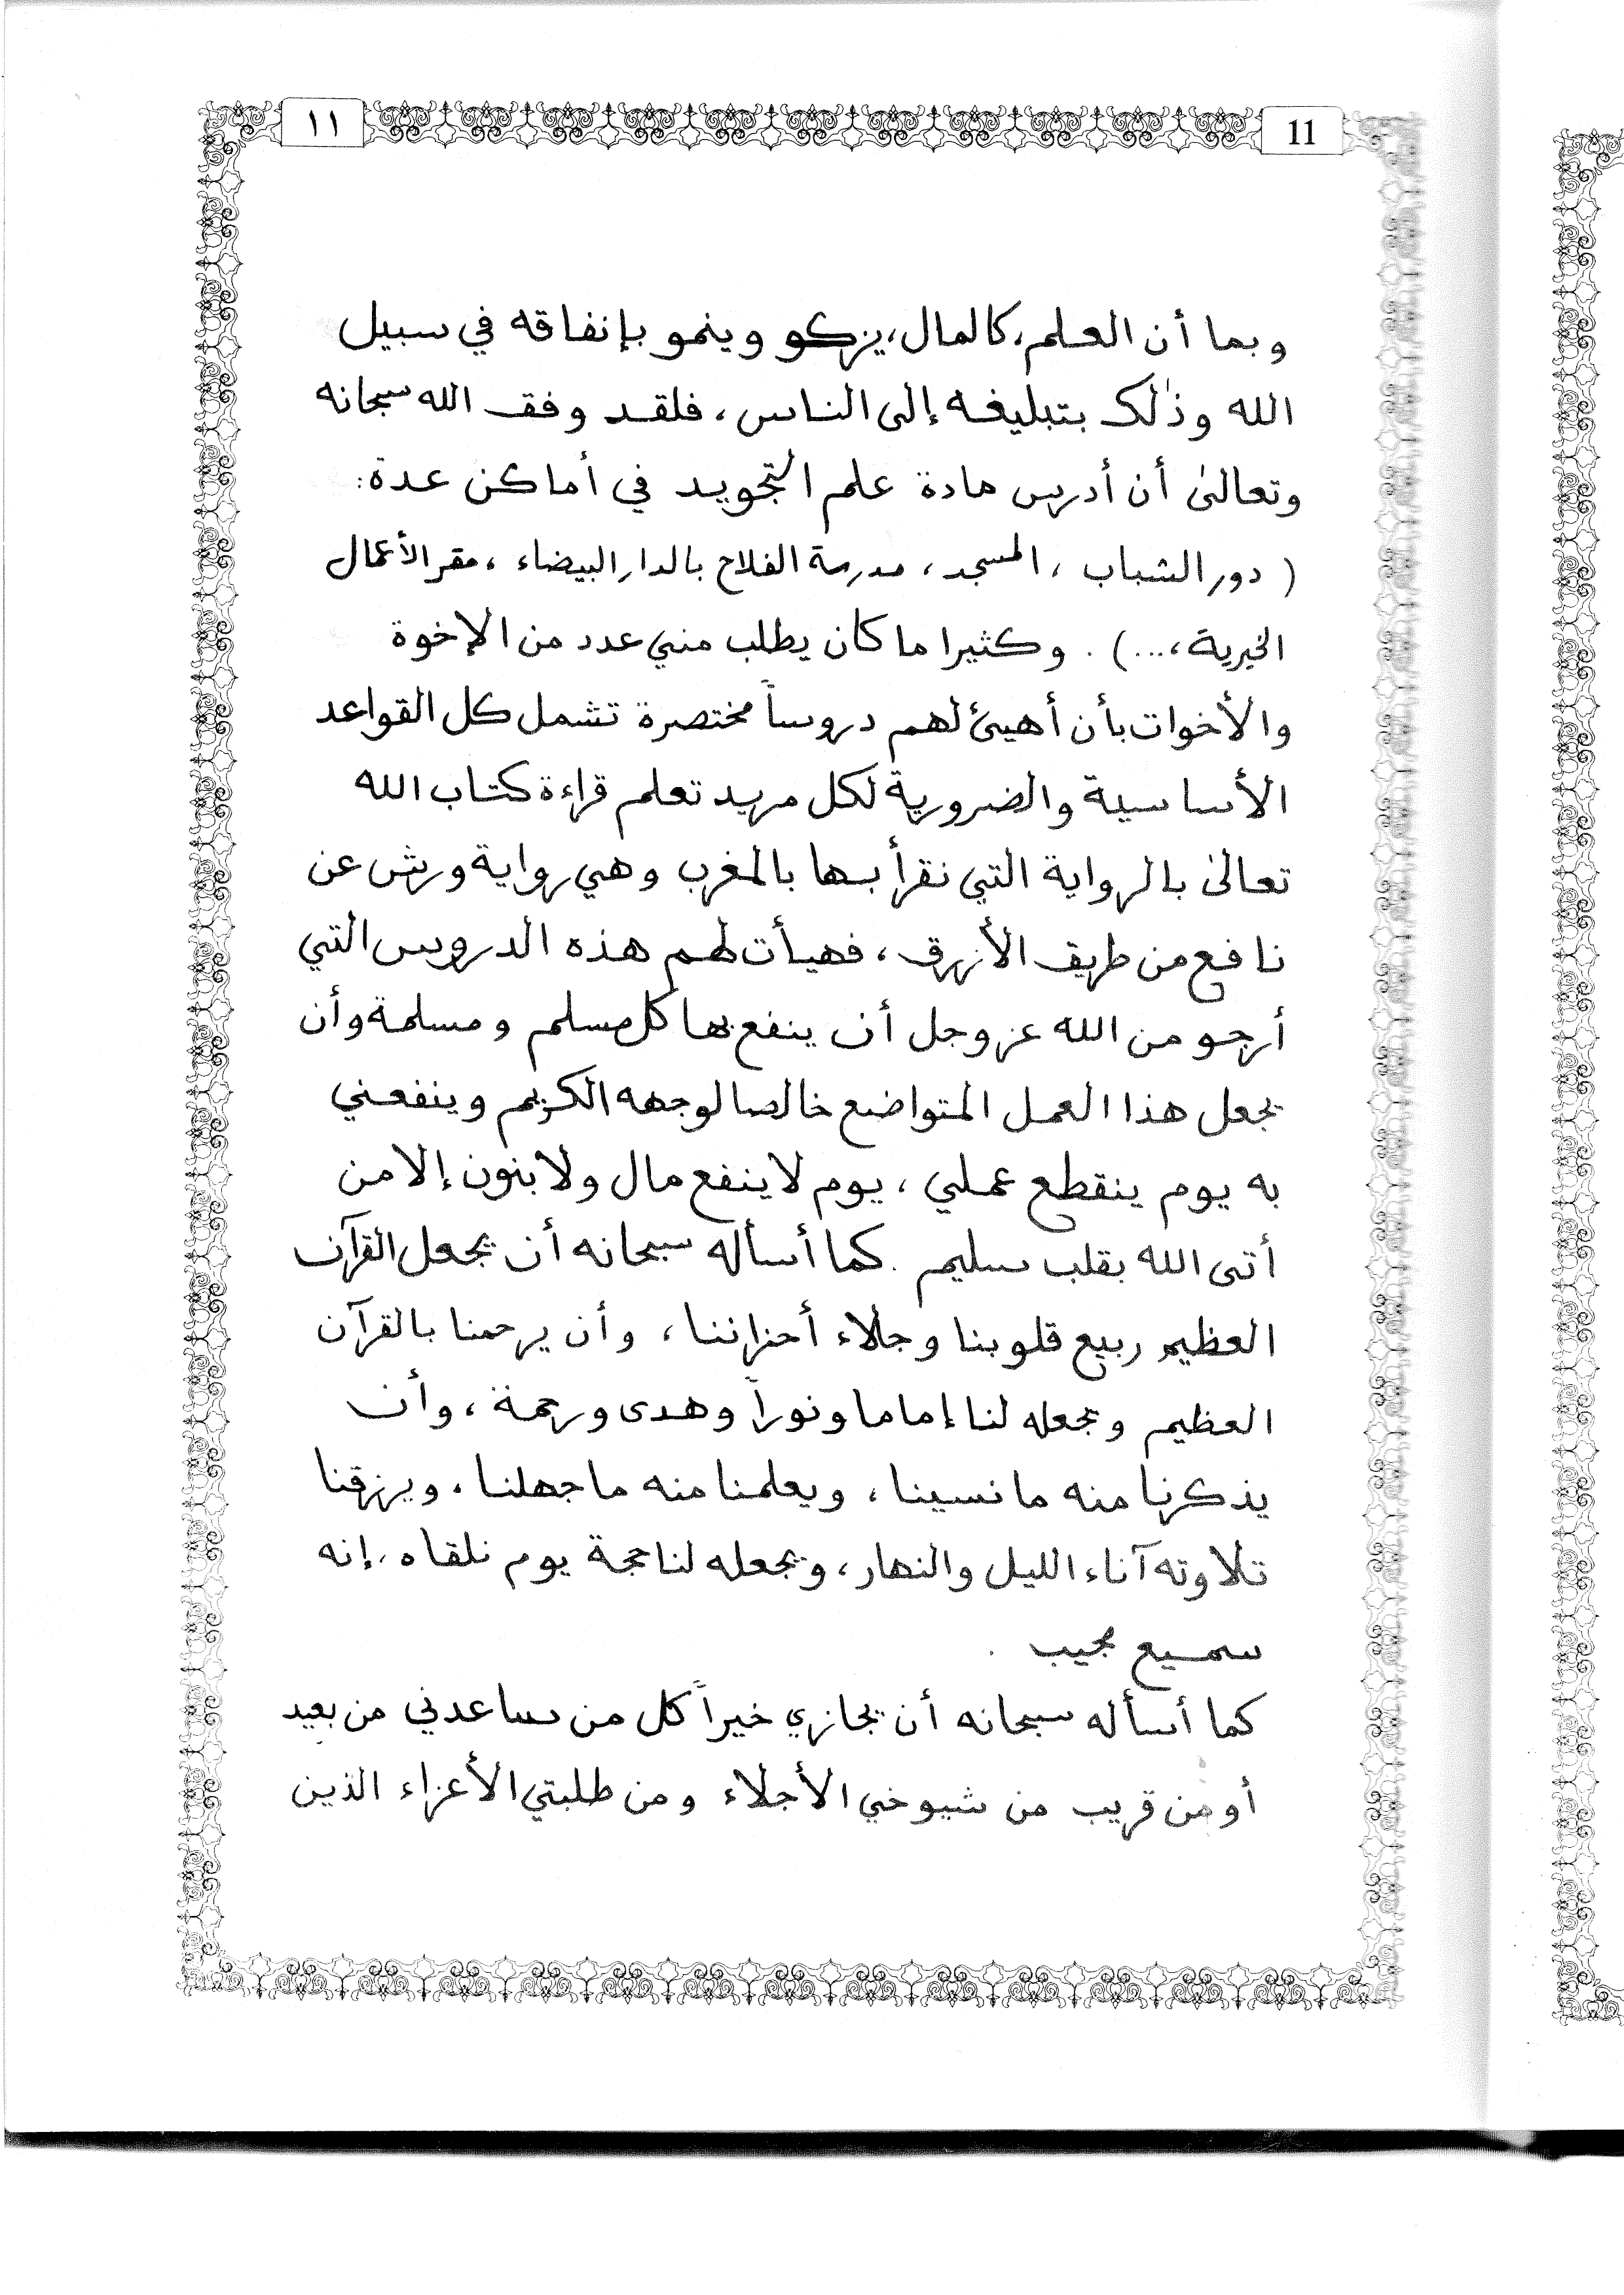 ١١
11
وبما أن العلم، كالمال، يزكو وينمو بإنفاقه في سبيل
الله وذلك بتبليغه إلى الناس، فلقد وفق الله سبحانه
وتعالى أن أدرس مادة علم التجويد في أماكن عدة:
( دور الشباب ، المسجد، مدرسة الفلاح بالدار البيضاء ، مقر الأعمال
الخيرية، ...) . وكثيرا ما كان يطلب مني عدد من الإخوة
والأخوات بأن أهيئ لهم دروساً مختصرة تشمل كل القواعد
الأساسية والضرورية لكل مريد تعلم قراءة كتاب الله
تعالى بالرواية التي نقرأ بها بالمغرب وهي رواية ورش عن
نافع من طريق الأزرق، فهيأت لهم هذه الدروس التي
أرجو من الله عز وجل أن ينفع بها كل مسلم ومسلمة وأن
يجعل هذا العمل المتواضع خالصا لوجهه الكريم وينفعني
به يوم ينقطع عملي، يوم لا ينفع مال ولا بنون إلا من
أتى الله بقلب سليم . كما أسأله سبحانه أن يجعل القرآن
العظيم ربيع قلوبنا وجلاء أحزاننا، وأن يرحمنا بالقرآن
العظيم ويجعله لنا إماما ونوراً وهدى ورحمة، وأن
يذكرنا منه ما نسينا، ويعلمنا منه ما جهلنا، ويرزقنا
تلاوته آناء الليل والنهار، ويجعله لنا حجة يوم نلقاه، إنه
سميع مجيب .
كما أسأله سبحانه أن يجازي خيراً كل من ساعدني من بعيد
أو من قريب من شيوخي الأجلاء ومن طلبتي الأعزاء الذين